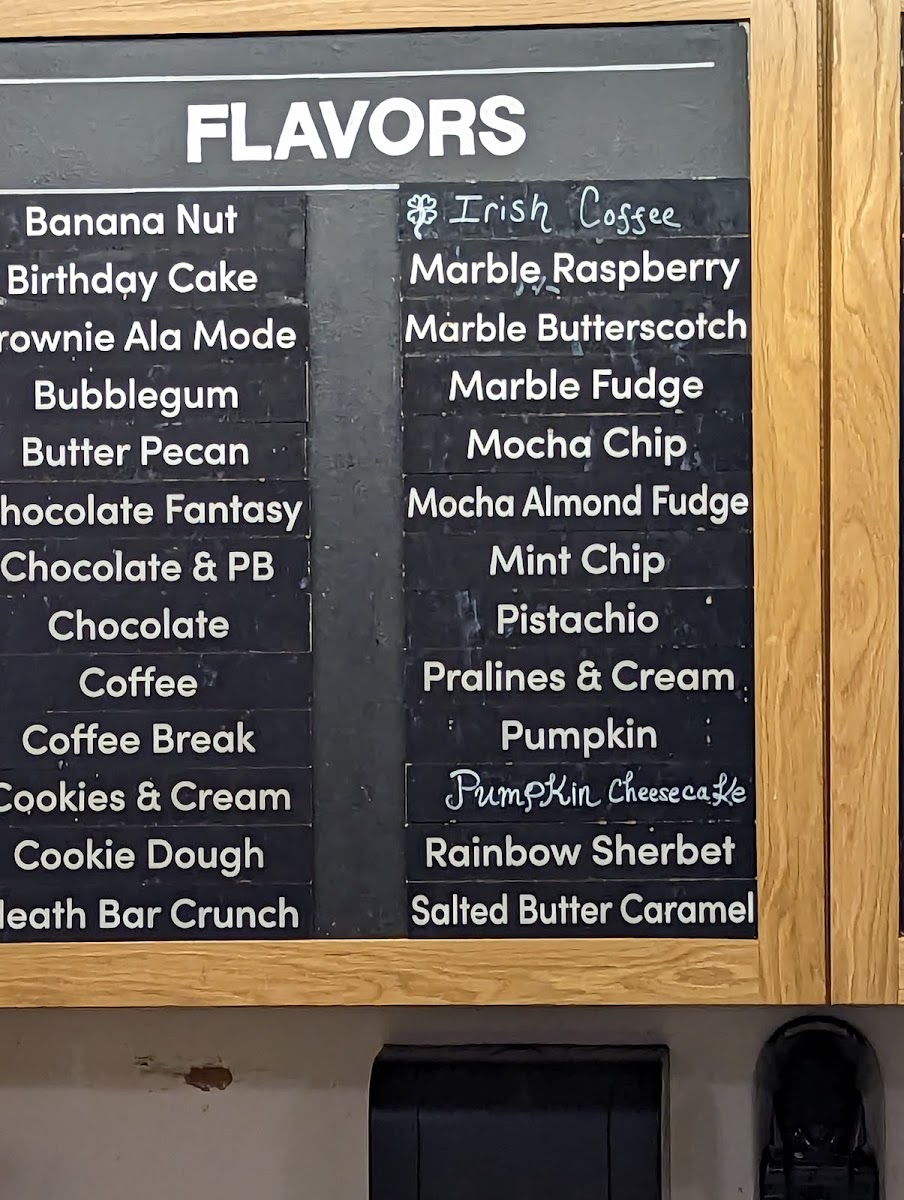 FLAVORS
Banana Nut
Birthday Cake
rownie Ala Mode
Bubblegum
Butter Pecan
hocolate Fantasy
Chocolate & PB
Chocolate
Coffee
Coffee Break
Cookies & Cream
Cookie Dough
Heath Bar Crunch
Irish Coffee
Marble Raspberry
Marble Butterscotch
Marble Fudge
Mocha Chip
Mocha Almond Fudge
Mint Chip
Pistachio
Pralines & Cream
Pumpkin
Pumpkin Cheesecake
Rainbow Sherbet
Salted Butter Caramel